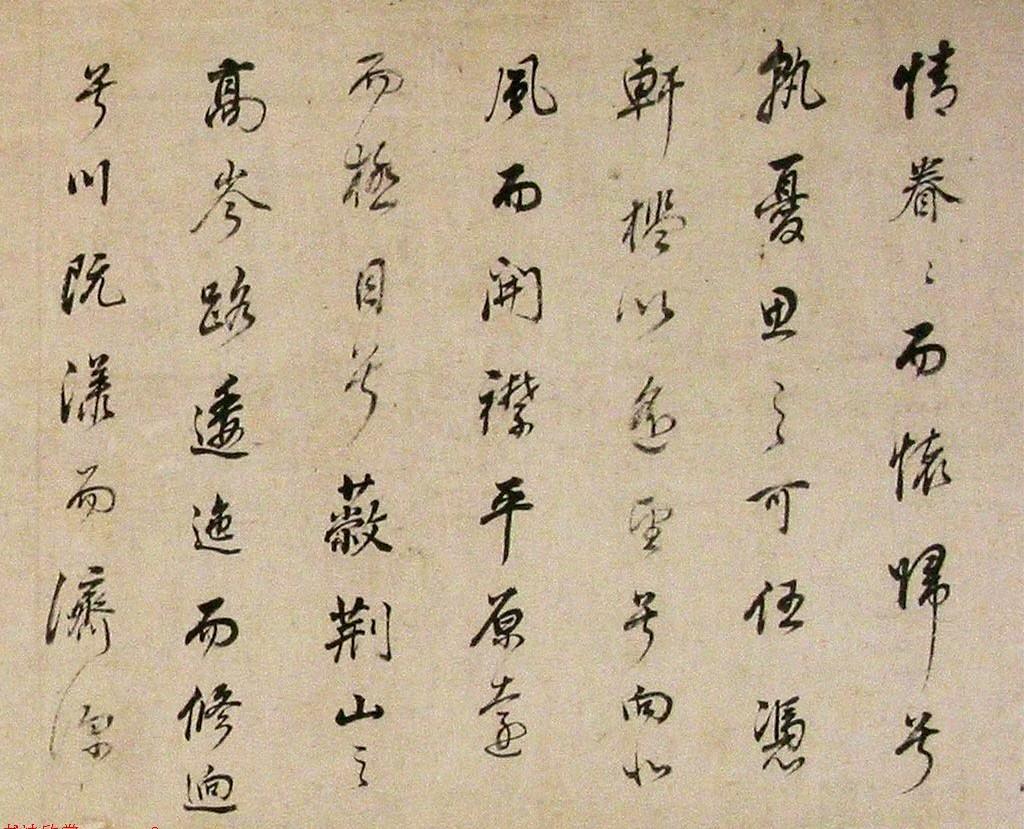 情眷〻而懷歸兮
孰憂思之可任憑
軒檻以遙望兮向北
風而開襟平原遠
而極目兮蔽荊山之
高岑路逶迤而修迥
兮川既漾而濟深